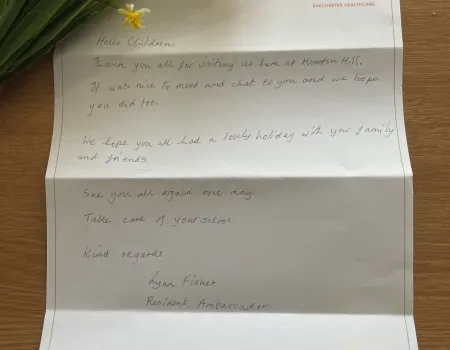 BARCHESTER HEALTHCARE
Hello Children.
Thank you all for visiting us here at Hill.
It was nice to meet and chat to you and we hope
you did too.
We hope you all had a lovely holiday with your family
and friends.
See you all again one day.
Take care of yourselves.
Kind regards
Lynn Fisher
Resident Ambassador